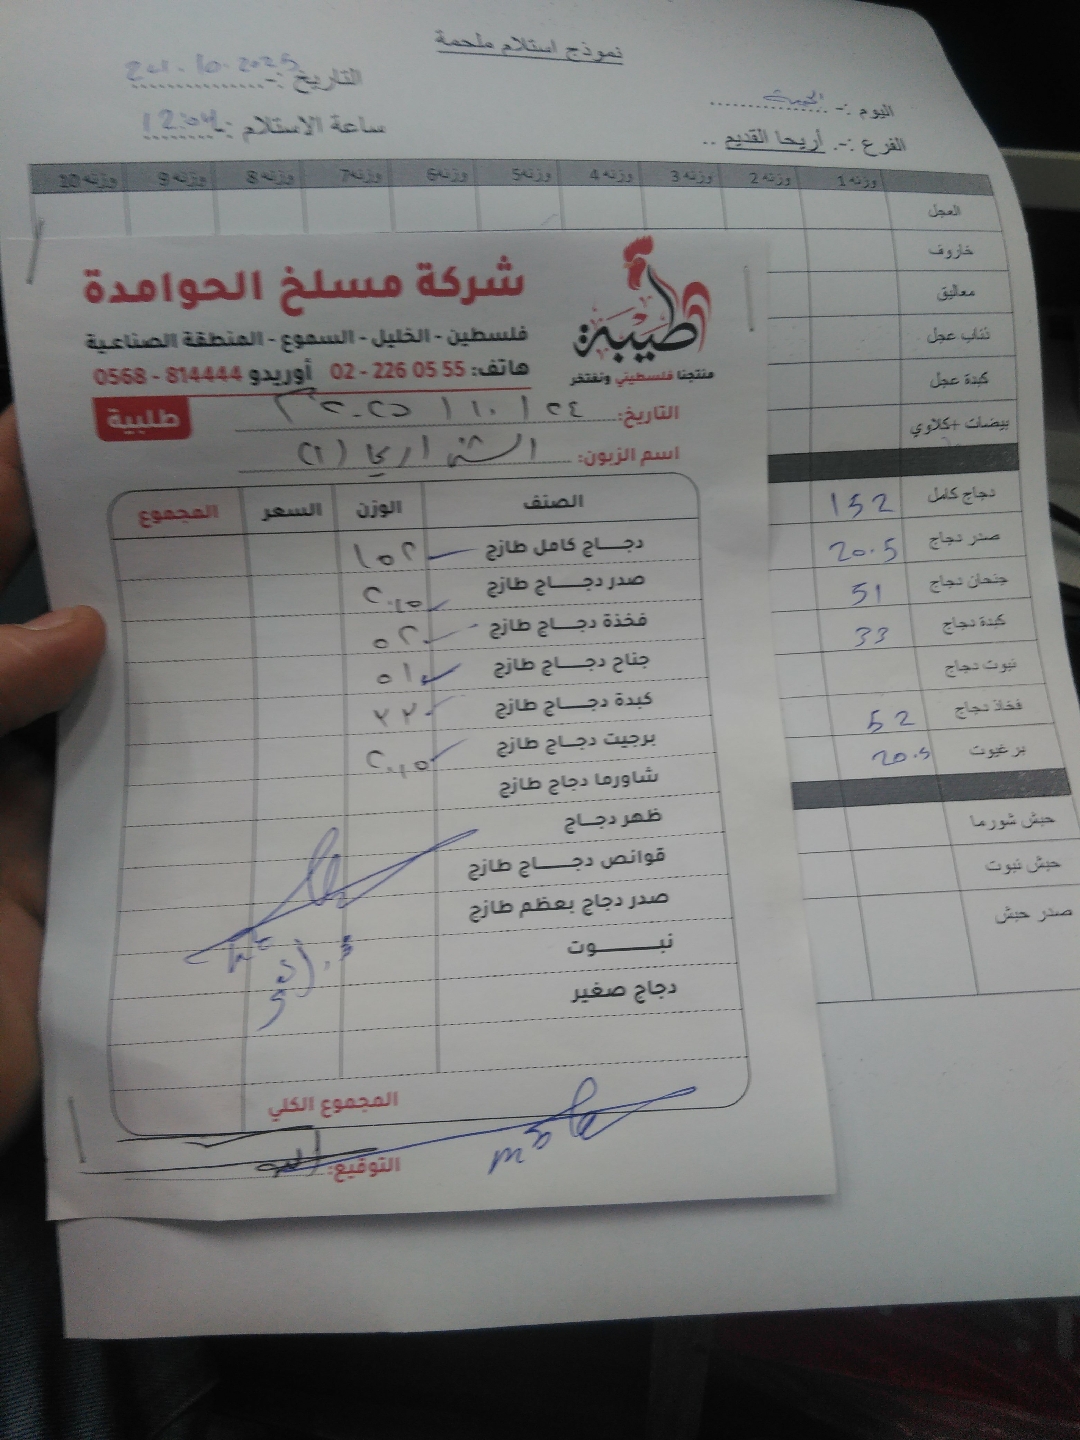 نموذج استلام ملحمة
اليوم :- 
التاريخ :- 24.10.2025
الفرع :- أريحا القديم ..
ساعة الاستلام :- 12:04
وزنه 1 وزنه 2 وزنه 3 وزنه 4 وزنه 5 وزنه 6 وزنه 7 وزنه 8 وزنه 9 وزنه 10
العجل
خاروف
معاليق
ذناب عجل
كبدة عجل
بيضات +كلاوي
دجاج كامل 152
صدر دجاج 20.5
جنحان دجاج 51
كبدة دجاج 33
نبوت دجاج
فخاذ دجاج 52
برغيوت 20.5
حبش شورما
حبش نبوت
صدر حبش
شركة مسلخ الحوامدة
فلسطين - الخليل - السموع - المنطقة الصناعية
هاتف: 02 - 226 05 55 أوريدو 0568 - 814444
طيبة
منتجنا فلسطيني ونفتخر
طلبية
التاريخ: ٢٤ / ١٠ / ٢٠٢٥
اسم الزبون: اريحا (٢)
الصنف الوزن السعر المجموع
دجاج كامل طازج ١٥٢
صدر دجاج طازج ٢٠,٥
فخذة دجاج طازج ٥٢
جناح دجاج طازج ٥١
كبدة دجاج طازج
برجيت دجاج طازج ٢٠,٥
شاورما دجاج طازج
ظهر دجاج
قوانص دجاج طازج
صدر دجاج بعظم طازج
نبوت
دجاج صغير
المجموع الكلي
التوقيع: